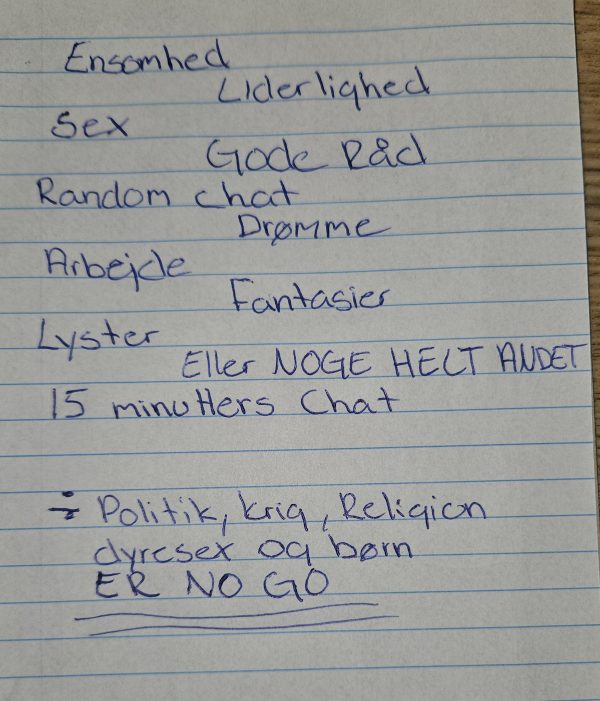 Ensomhed
Liderlighed
Sex
Gode Råd
Random chat
Drømme
Arbejde
Fantasier
Lyster
Eller NOGE HELT ANDET
15 minutters Chat
÷ Politik, krig, Religion
dyresex og børn
ER NO GO